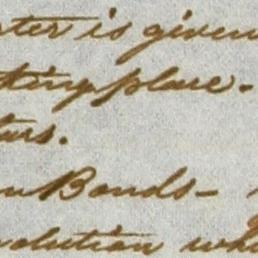 ter is given
king place.
tus.
Bonds—
olution whi